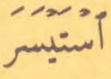 اَسْتَيْسَرَ